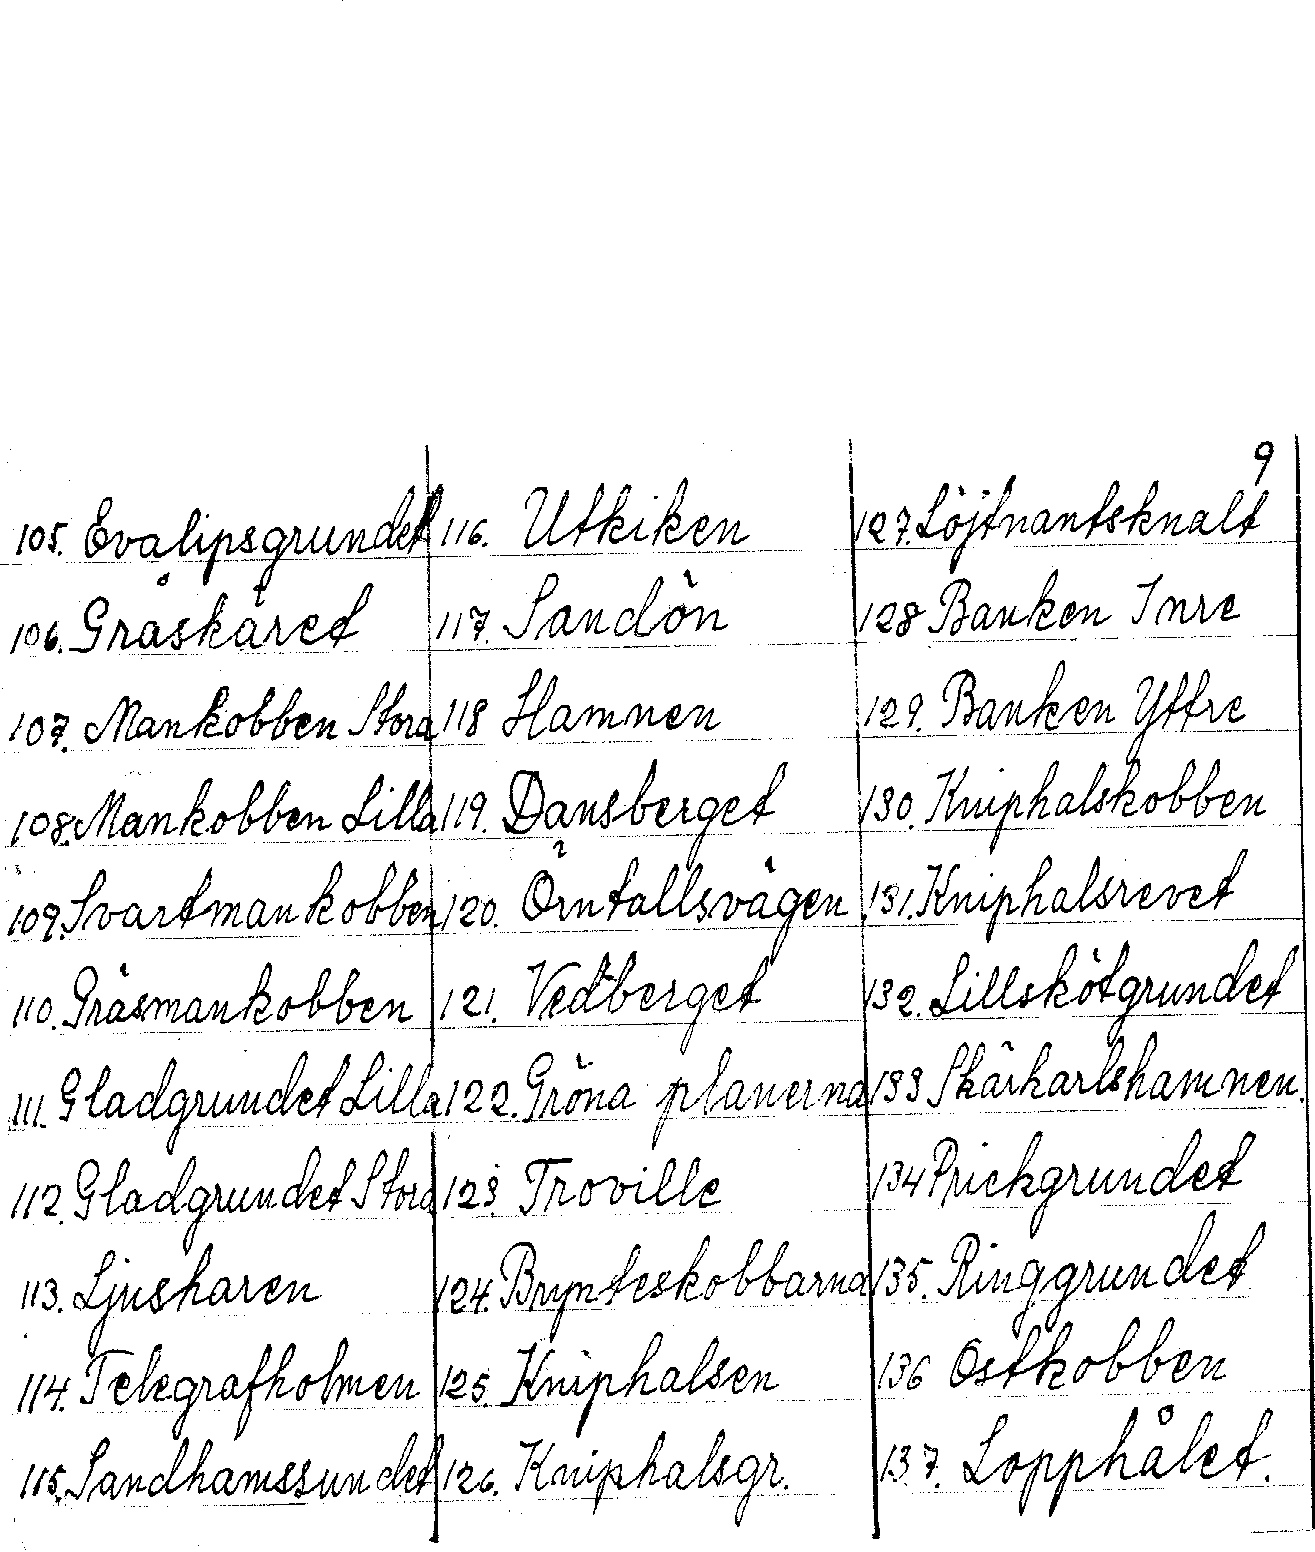 9
105. Evalipsgrundet
106. Gråskäret
107. Mankobben Stora
108. Mankobben Lilla
109. Svartmankobben
110. Gräsmankobben
111. Gladgrundet Lilla
112. Gladgrundet Stora
113. Ljusharen
114. Telegrafholmen
115. Sandhamssundet
116. Utkiken
117. Sandön
118 Hamnen
119. Dansberget
120. Örntallsvägen
121. Vedberget
122. Gröna planerna
123. Troville
124. Brynteskobbarna
125. Kniphalsen
126. Kniphalsgr.
127. Löjtnantsknalt
128 Banken Inre
129. Banken Yttre
130. Kniphalskobben
131. Kniphalsrevet
132. Lillskötgrundet
133 Skärkarlshamnen.
134 Prickgrundet
135. Ringgrundet
136 Ostkobben
137. Lopphålet.